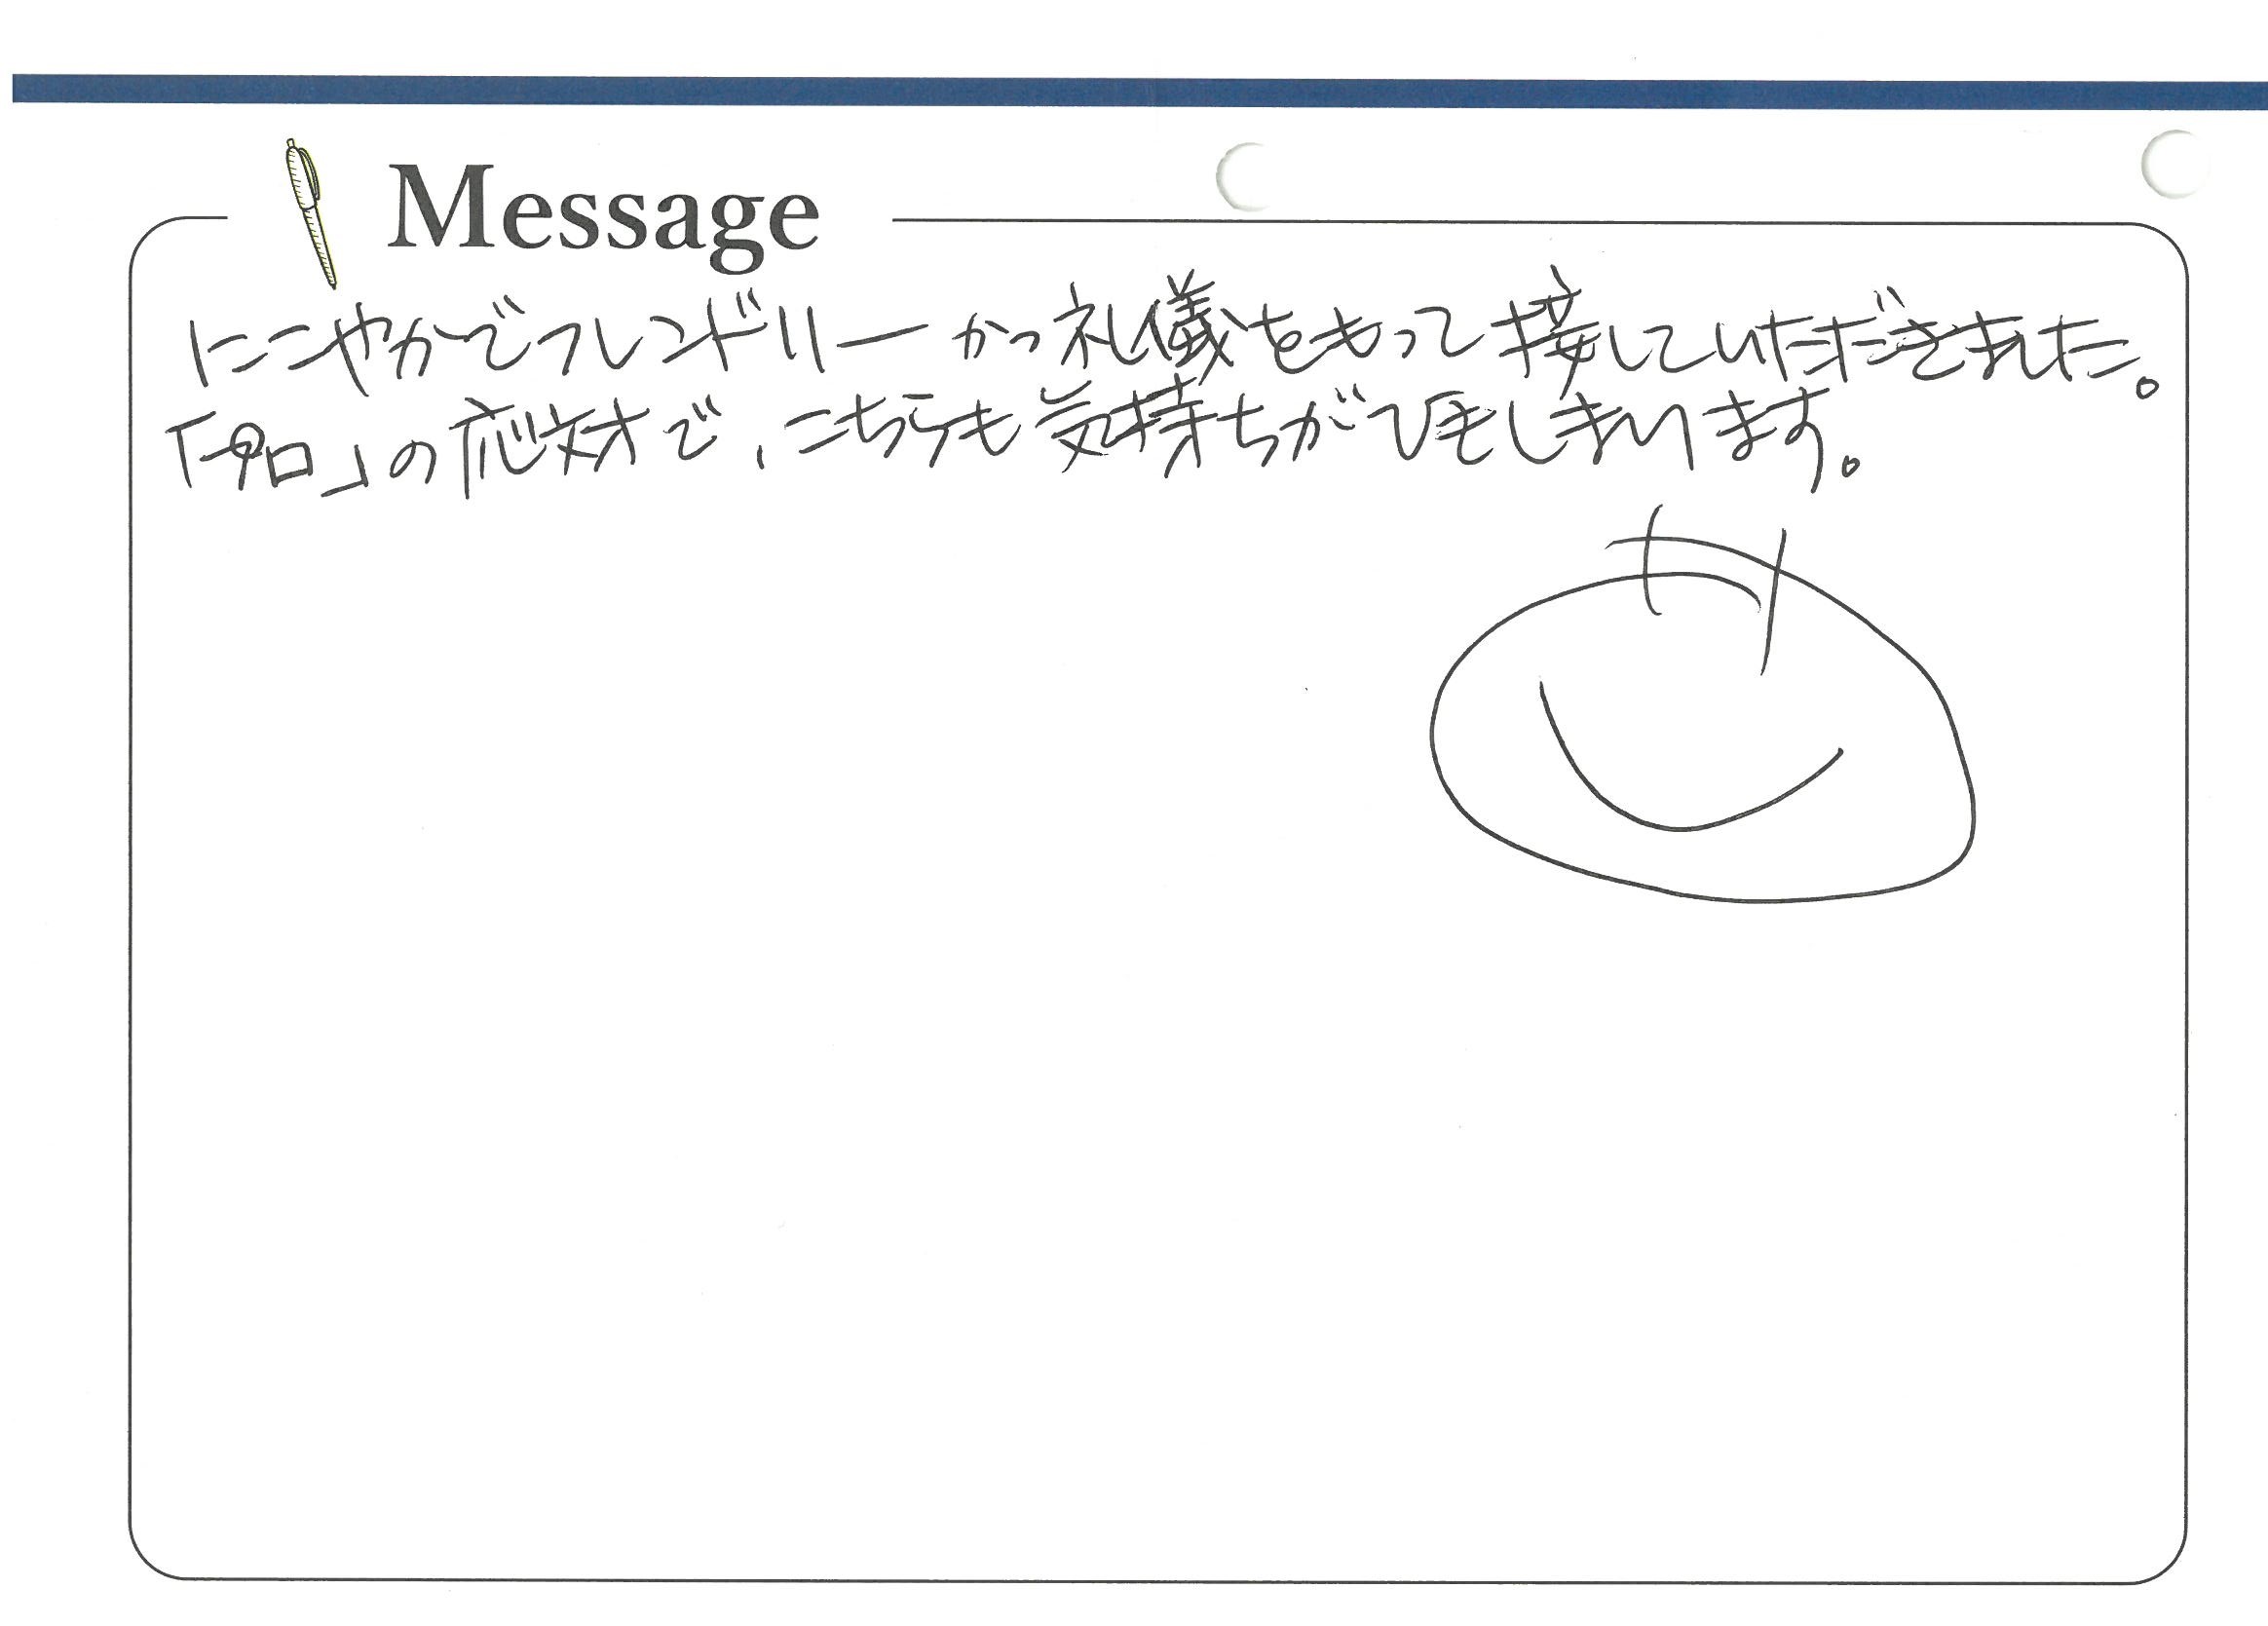 Message
にこやかでフレンドリーかつ礼儀をもって接していただきました。
「プロ」の応対で、こちらも気持ちがひきしまります。